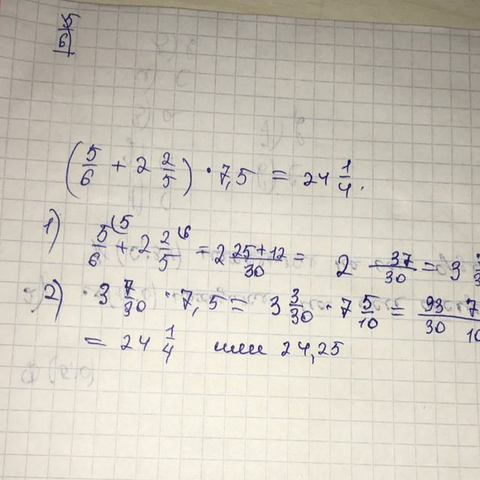 5/6
(5/6 + 2 2/5) · 7,5 = 24 1/4.
1) 5/6 (5 + 2 2/5 (6 = 2 25+12/30 = 2 37/30 = 3
2) · 3 7/30 · 7,5 = 3 3/30 · 7 5/10 = 93/30 7 10
= 24 1/4 или 24,25